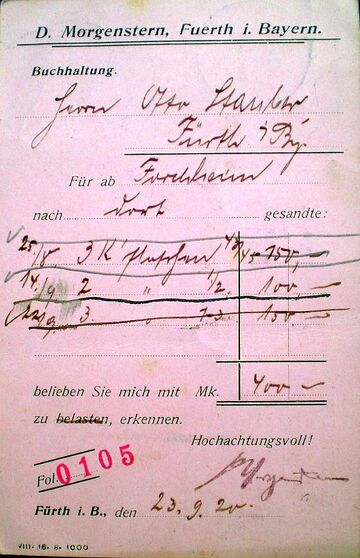 D. Morgenstern, Fuerth i. Bayern.
Buchhaltung.
Herrn Otto Stauber
Fürth i/By.
Für ab Forchheim
nach dort gesandte:
25/8 3 K' 150,-
14/9 2 " 1/2. 100,-
22/9. 3. " 150 -
belieben Sie mich mit Mk. 400 -
zu belasten, erkennen.
Hochachtungsvoll!
Fol. 0105
Morgenstern
Fürth i. B., den 23. 9. 20.
VIII. 16. 8. 1000